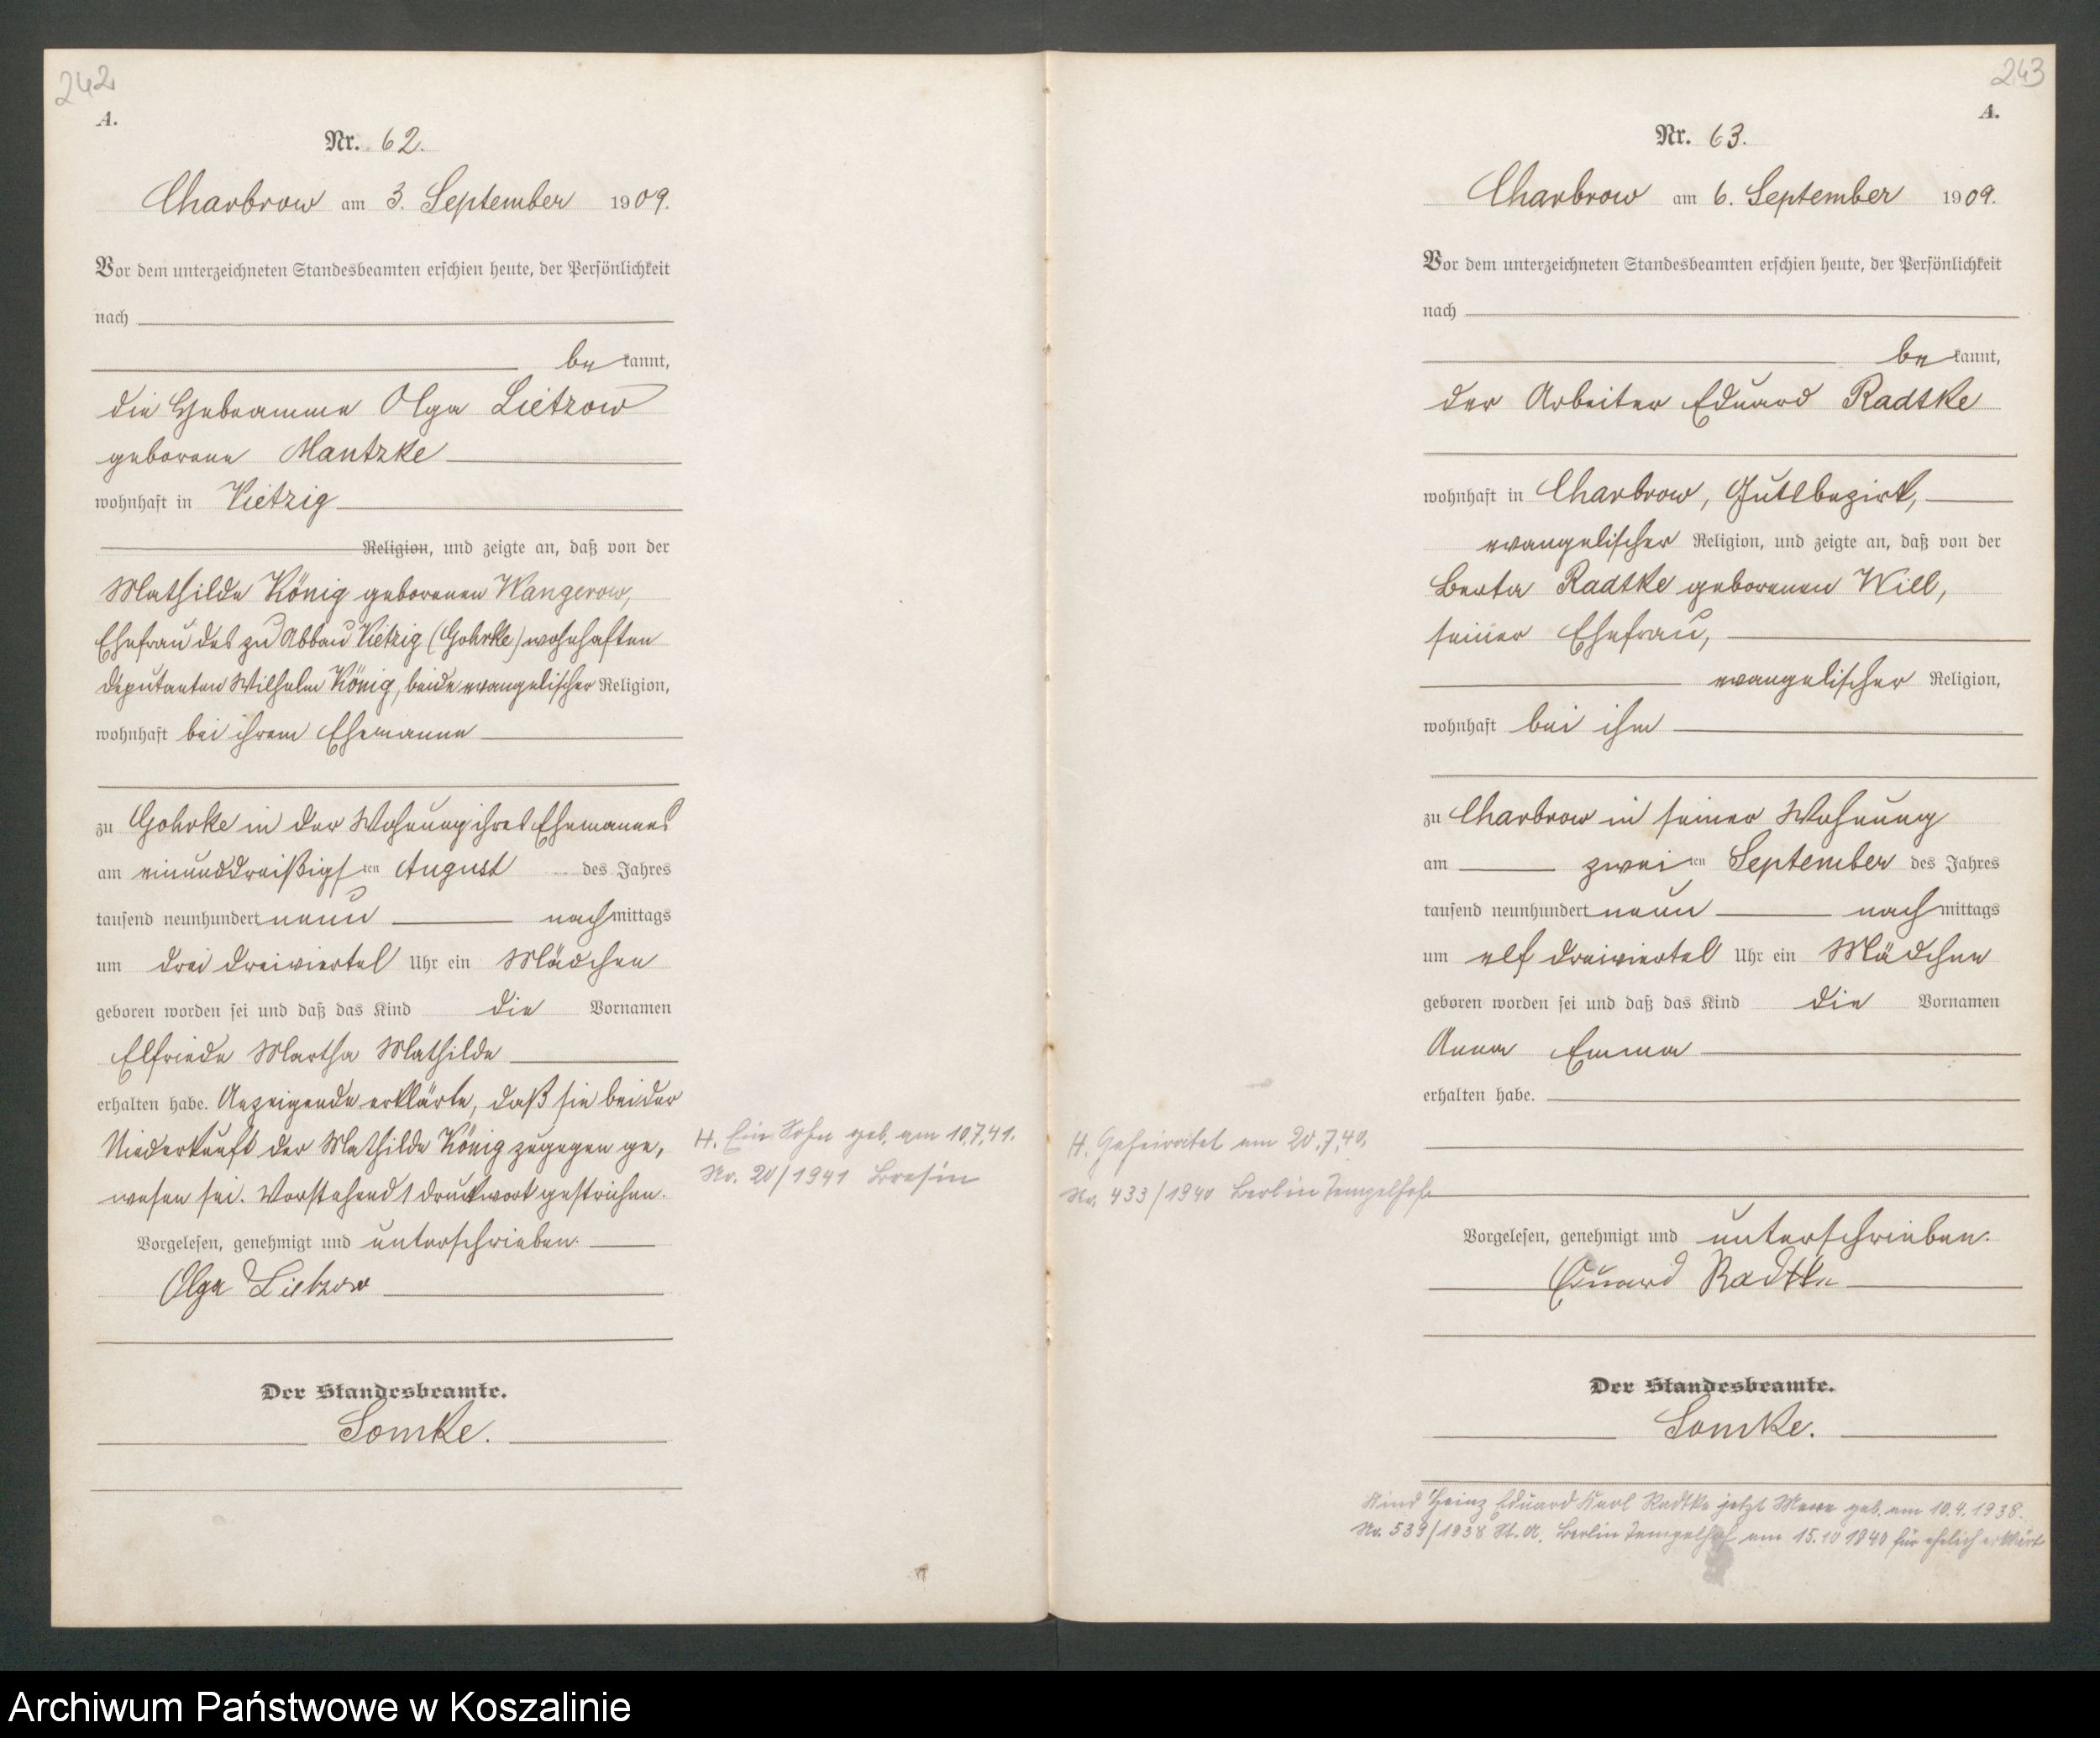 242
A.
Nr. 62.
Charbrow am 3. September 1909.
Vor dem unterzeichneten Standesbeamten erschien heute, der Persönlichkeit
nach
be kannt,
die Hebeamme Olga Lietzow
geborene Mantzke
wohnhaft in Vietzig
Religion, und zeigte an, daß von der
Mathilde König geborenen Wangerow,
Ehefrau des zu Abbau Vietzig (Gohrke) wohnhaften
Deputanten Wilhelm König, beide evangelischer Religion,
wohnhaft bei ihrem Ehemanne
zu Gohrke in der Wohnung ihres Ehemannes
am einunddreißigsten August des Jahres
tausend neunhundert neun nachmittags
um drei dreiviertel Uhr ein Mädchen
geboren worden sei und daß das Kind die Vornamen
Elfriede Martha Mathilde
erhalten habe. Anzeigende erklärte, daß sie bei der
Niederkunft der Mathilde König zugegen ge,
wesen sei. Vorstehend 1 Druckwort gestrichen.
Vorgelesen, genehmigt und unterschrieben.
Olga Lietzow
Der Standesbeamte.
Lomke.
H. Ein Sohn geb. am 10.7.41.
Nr. 20/1941 Bresin
243
A.
Nr. 63.
Charbrow am 6. September 1909.
Vor dem unterzeichneten Standesbeamten erschien heute, der Persönlichkeit
nach
be kannt,
der Arbeiter Eduard Radtke
wohnhaft in Charbrow, Gutsbezirk,
evangelischer Religion, und zeigte an, daß von der
Berta Radtke geborenen Will,
seiner Ehefrau,
evangelischer Religion,
wohnhaft bei ihm
zu Charbrow in seiner Wohnung
am zweiten September des Jahres
tausend neunhundert neun nachmittags
um elf dreiviertel Uhr ein Mädchen
geboren worden sei und daß das Kind die Vornamen
Anna Emma
erhalten habe.
H. Geheiratet am 20.7.40.
Nr. 433/1940 Berlin Tempelhof
Vorgelesen, genehmigt und unterschrieben.
Eduard Radtke
Der Standesbeamte.
Lomke.
Kind Heinz Eduard Karl Radtke jetzt geb. am 10.4.1938.
Nr. 539/1938 St.A. Berlin Tempelhof am 15.10 1940 für ehelich erklärt
Archiwum Państwowe w Koszalinie